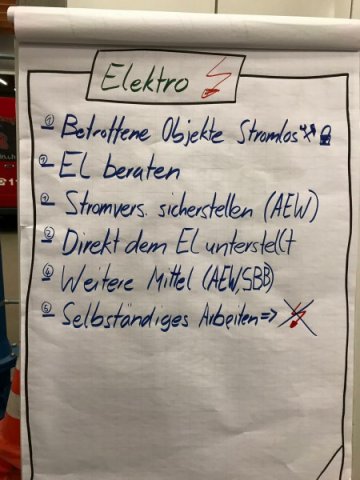 Elektro
① Betroffene Objekte Stromlos
② EL beraten
② Stromvers. sicherstellen (AEW)
② Direkt dem EL unterstellt
④ Weitere Mittel (AEW, SBB)
⑤ Selbständiges Arbeiten =>